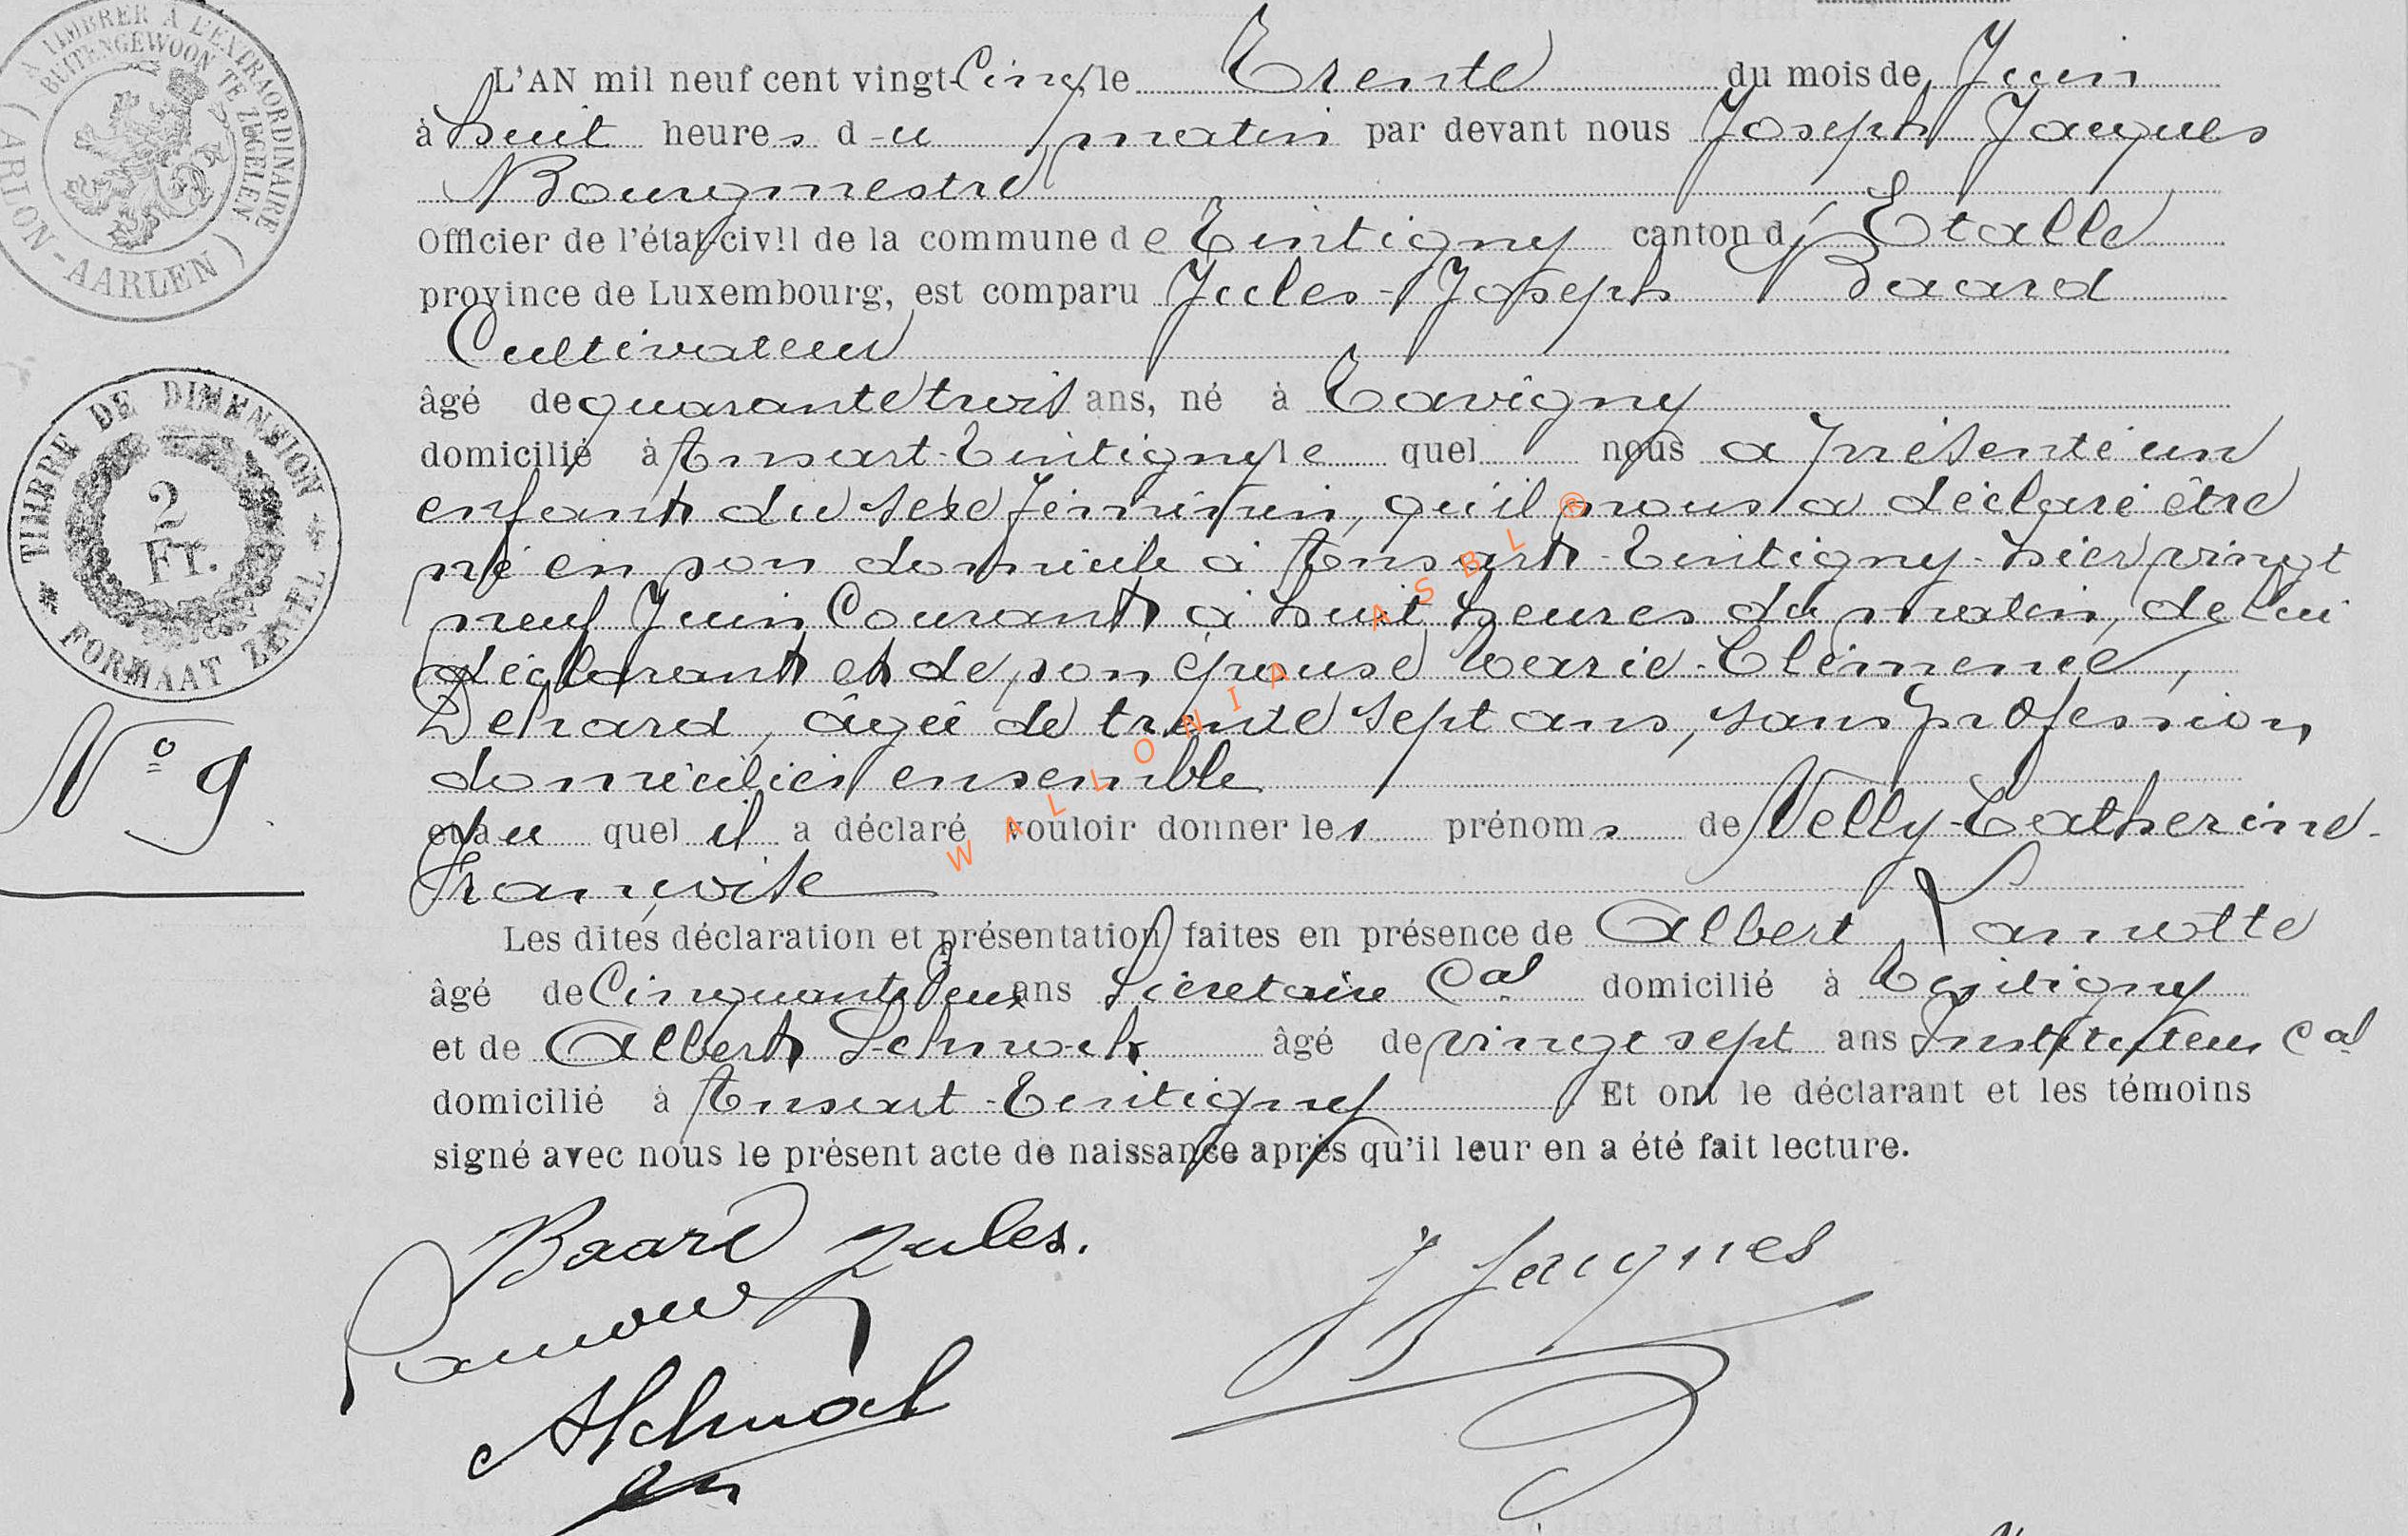 A TIMBRER A L'EXTRAORDINAIRE
BUITENGEWOON TE ZEGELEN
(ARLON-AARLEN)
L'AN mil neuf cent vingt-Cinq le Trente du mois de Juin
à huit heures d-u matin par devant nous Joseph Jacques
Bourgmestre
Officier de l'état-civil de la commune de Tintigny canton d'Etalle
province de Luxembourg, est comparu Jules-Joseph Baard
Cultivateur
âgé de quarante trois ans, né à Tavigny
domicilié à Ansart-Tintigny le quel nous a présenté un
enfant du sexe féminin, qu'il nous a déclaré être
né en son domicile à Ansart-Tintigny-hier vingt
neuf Juin Courant à huit heures du matin, de lui
déclarant et de son épouse Marie-Clémence,
Denard, âgée de trente sept ans, sans profession
domiciliés ensemble
et au quel il a déclaré vouloir donner les prénoms de Nelly-Catherine-
Françoise
Les dites déclaration et présentation faites en présence de Albert Lamotte
âgé de Cinquante Deux ans Sécretaire Cal domicilié à Tintigny
et de Albert Schmoek âgé de vingt sept ans Instituteur Cal
domicilié à Ansart-Tintigny Et ont le déclarant et les témoins
signé avec nous le présent acte de naissance après qu'il leur en a été fait lecture.
TIMBRE DE DIMENSION
2
Fr.
FORMAAT ZEGEL
N° 9
Baard Jules.
J Jacques
WALLONIA ASBL ®